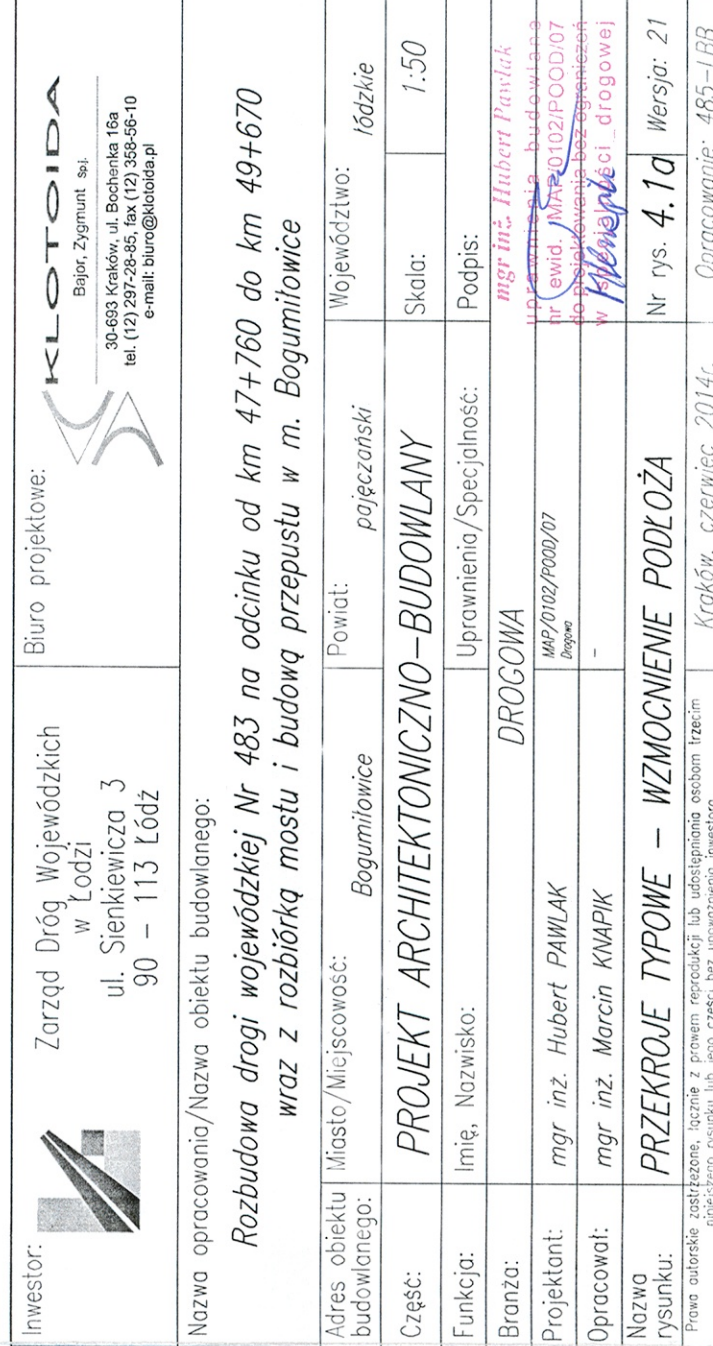 Inwestor:
Zarząd Dróg Wojewódzkich
w Łodzi
ul. Sienkiewicza 3
90 – 113 Łódź
Biuro projektowe:
KLOTOIDA
Bajor, Zygmunt spj.
30-693 Kraków, ul. Bochenka 16a
tel. (12) 297-28-85, fax (12) 358-56-10
e-mail: biuro@klotoida.pl
Nazwa opracowania/Nazwa obiektu budowlanego:
Rozbudowa drogi wojewódzkiej Nr 483 na odcinku od km 47+760 do km 49+670
wraz z rozbiórką mostu i budową przepustu w m. Bogumiłowice
Adres obiektu budowlanego:
Miasto/Miejscowość: Bogumiłowice
Powiat: pajęczański
Województwo: łódzkie
Część: PROJEKT ARCHITEKTONICZNO–BUDOWLANY
Skala: 1:50
Funkcja: Imię, Nazwisko: Uprawnienia/Specjalność: Podpis:
Branża: DROGOWA
Projektant: mgr inż. Hubert PAWLAK
MAP/0102/POOD/07
Drogowa
mgr inż. Hubert Pawlak
uprawnienia budowlane
nr ewid. MAP/0102/POOD/07
do projektowania bez ograniczeń
w specjalności drogowej
Opracował: mgr inż. Marcin KNAPIK –
Nazwa rysunku:
PRZEKROJE TYPOWE – WZMOCNIENIE PODŁOŻA
Nr rys. 4.1a Wersja: 21
Prawa autorskie zastrzeżone, łącznie z prawem reprodukcji lub udostępniania osobom trzecim
niniejszego rysunku lub jego części bez upoważnienia inwestora
Kraków, czerwiec 2014r.
Opracowanie: 485-LBR